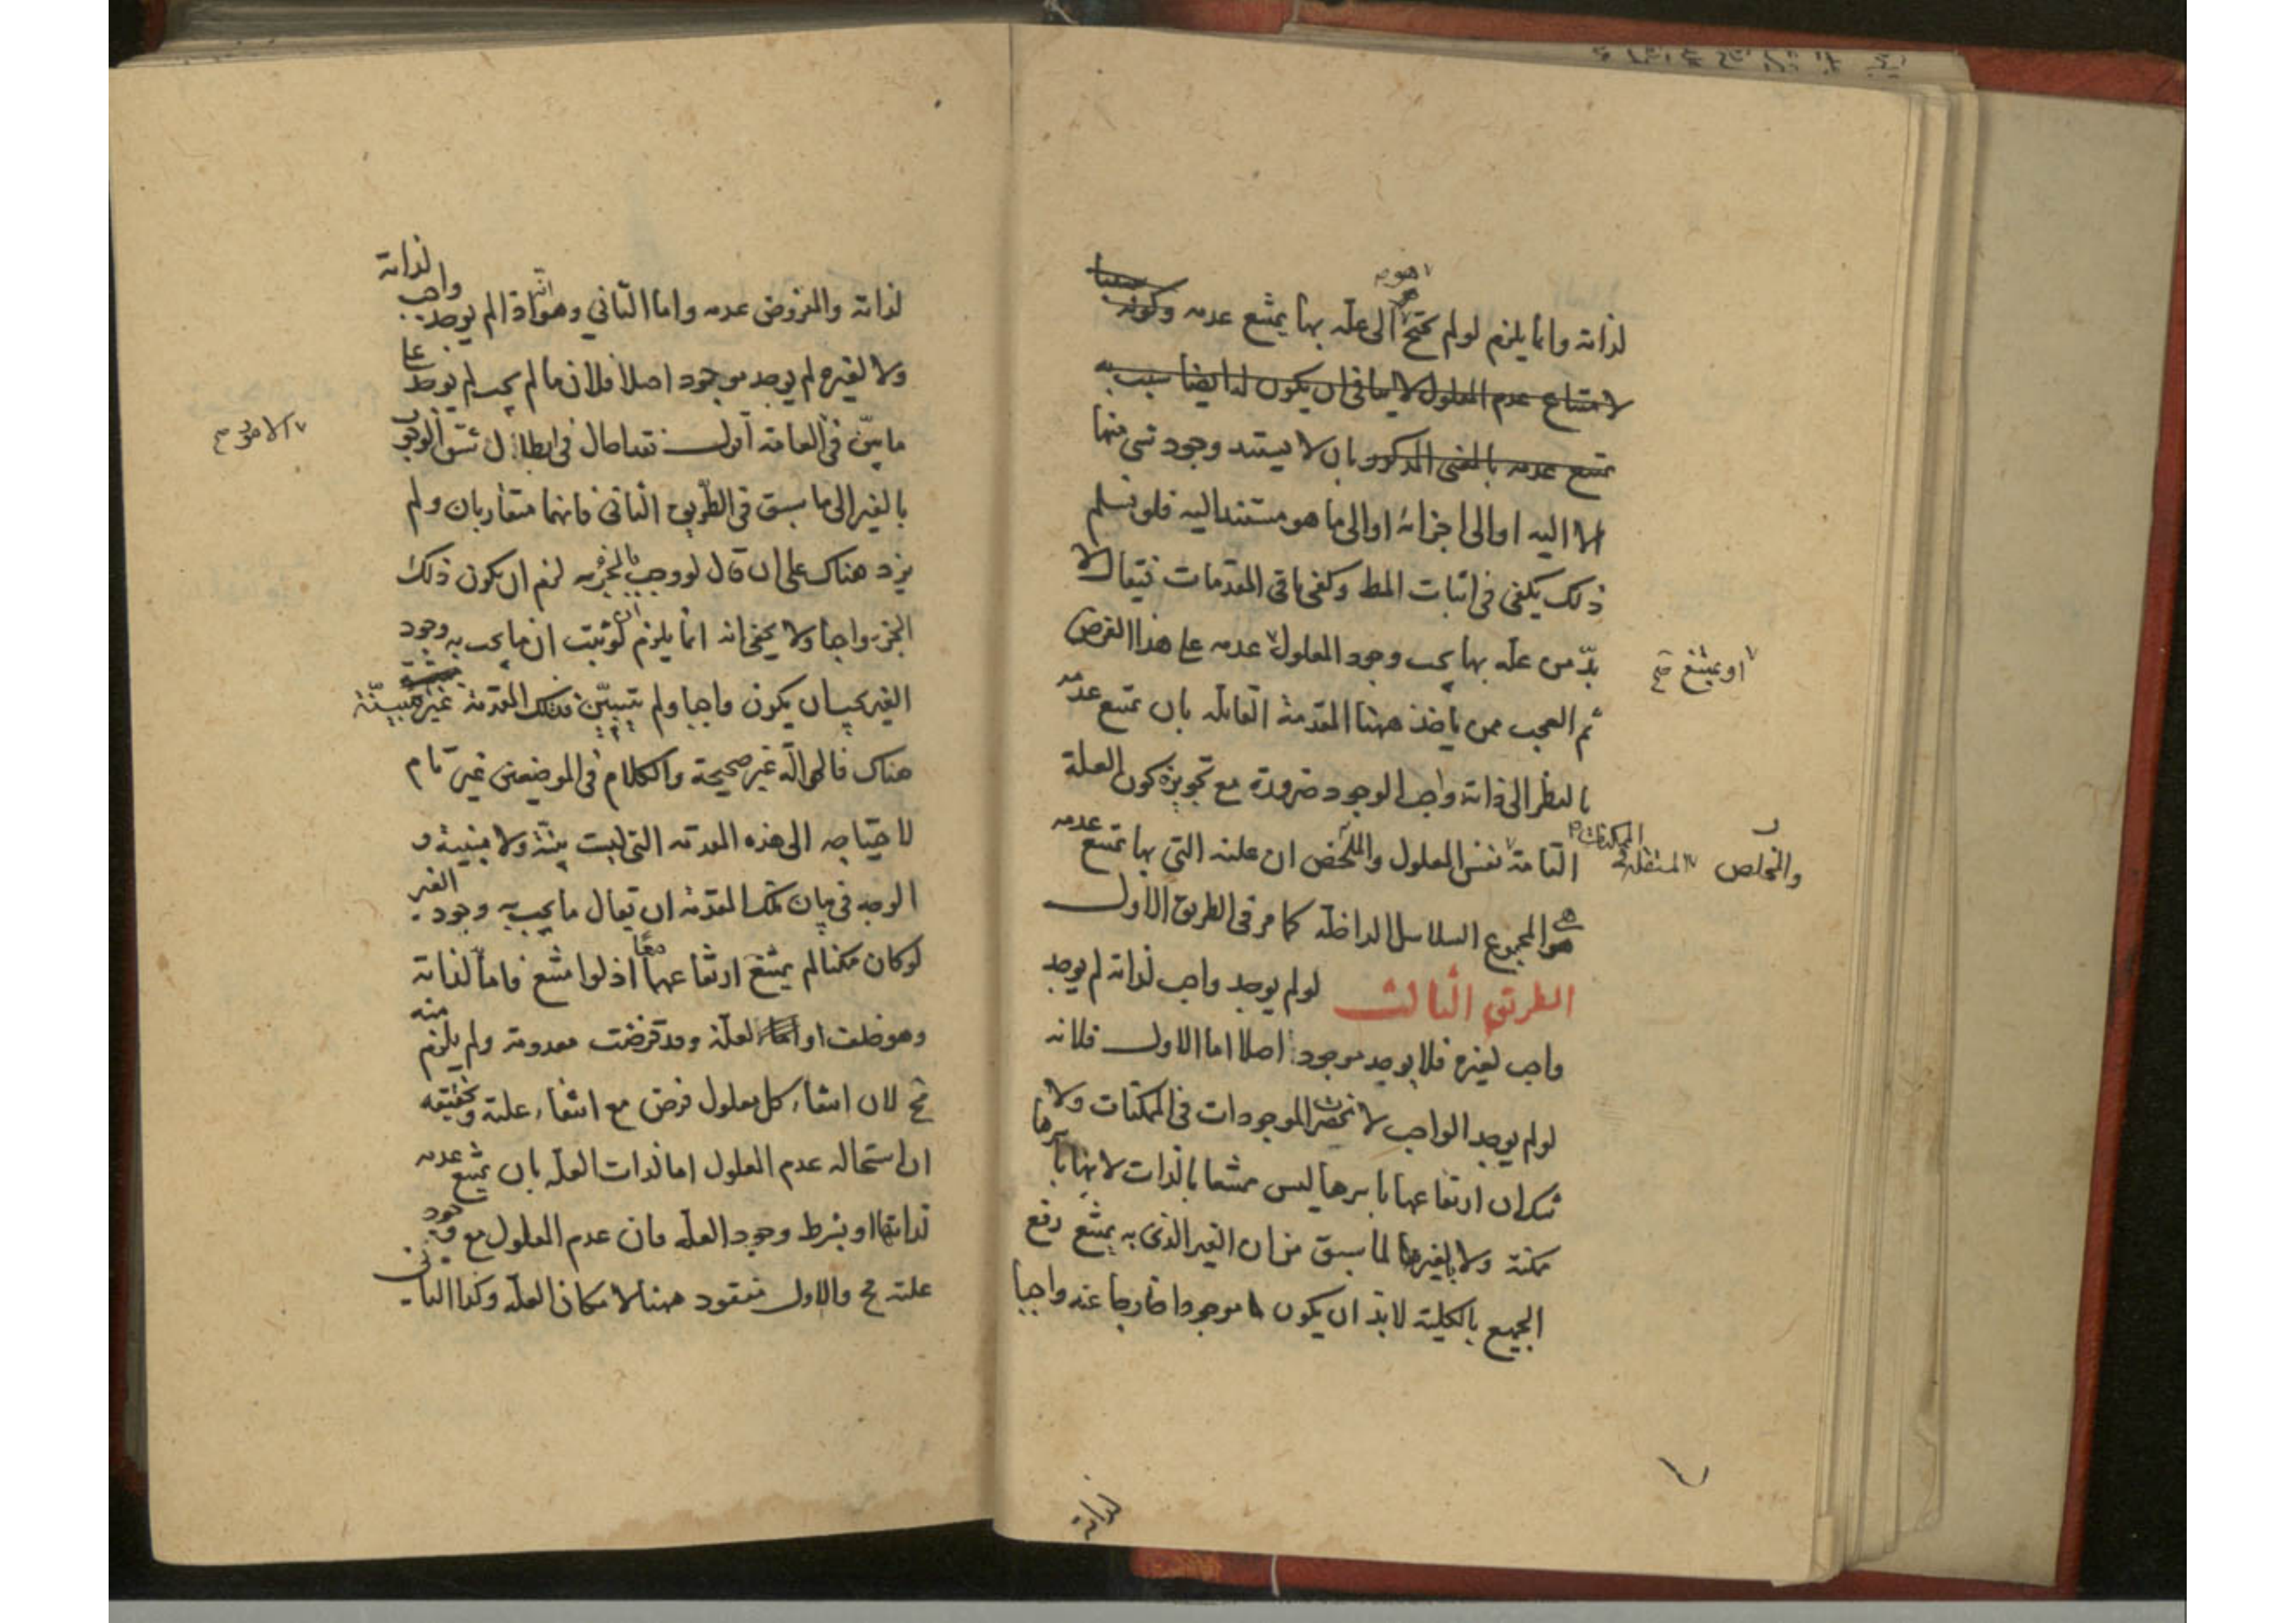 لذاته وانما يلزم لو لم يحتج هو الى علة بها يمتنع عدمه وكونه
لامتناع عدم المعلول لا ينافى ان يكون له ايضا سبب به
يمتنع عدمه بالمعنى المذكور بان لا يستند وجود شى منها
الا اليه او الى اجزائه او الى ما هو مستند اليه فلو نسلم
ذلك يكفى فى اثبات المط وكفى باقى المقدمات فيقال لا
بد من علة بها يجب وجود المعلول عدمه على هذا الفرض
او يمتنع صح
ثم العجب ممن ياخذ ههنا المقدمة القائلة بان يمتنع عدمه
بالنظر الى ذاته واجب الوجود ضرورة مع تجويزه كون العلة
التامة نفس المعلول والملخص ان علته التى بها يمتنع عدمه
والمخلص
هى المجموع السلاسل الداخلة كما مر فى الطريق الاول
الطريق الثالث لو لم يوجد واجب لذاته لم يوجد
واجب لغيره فلا يوجد موجود اصلا اما الاول فلانه
لو لم يوجد الواجب لانحصرت الموجودات فى الممكنات ولا
شك ان ارتفاعها باسرها ليس ممتنعا بالذات لانها باسرها
ممكنة ولا بالغير لما سبق من ان الغير الذى به يمتنع رفع
الجميع بالكلية لا بد ان يكون موجودا خارجا عنه واجبا
لذاته
لذاته والمفروض عدمه واما الثاني وهو انه اذا لم يوجد واجب لذاته
ولا لغيره لم يوجد موجود اصلا فلان ما لم يجب لم يوجد على
ما بين فى العامة اقول نقد احال فى ابطال شق الوجوب
بالغير الى ما سبق فى الطريق الثانى فانهما متقاربان ولم
يزد هناك على ان قال لو وجب بالجزء لزم ان يكون ذلك
الجزء واجبا ولا يخفى انه انما يلزم ان لو ثبت ان ما يجب به وجود
الغير يجب ان يكون واجبا ولم يتبين فتلك المقدمة غير مبينة
هناك فالحوالة غير صحيحة والكلام فى الموضعين غير تام
لاحتياجه الى هذه المقدمة التى ليست بينة ولا مبينة و
الوجه فى بيان تلك المقدمة ان يقال ما يجب به وجود الغير
لو كان ممكنا لم يمتنع ارتفاعهما معا اذ لو امتنع فاما لذاته
وهو خلف او لعلة وقد فرضت معدومة ولم يلزم منه
مح لان انتفاء كل معلول فرض مع انتفاء علته وتحقيقه
ان استحاله عدم المعلول اما لذات العلة بان يمتنع عدمه
لذاتها او بشرط وجود العلة فان عدم المعلول مع وجود
علته مح والاول مفقود ههنا لامكان العلة وكذا الثانى